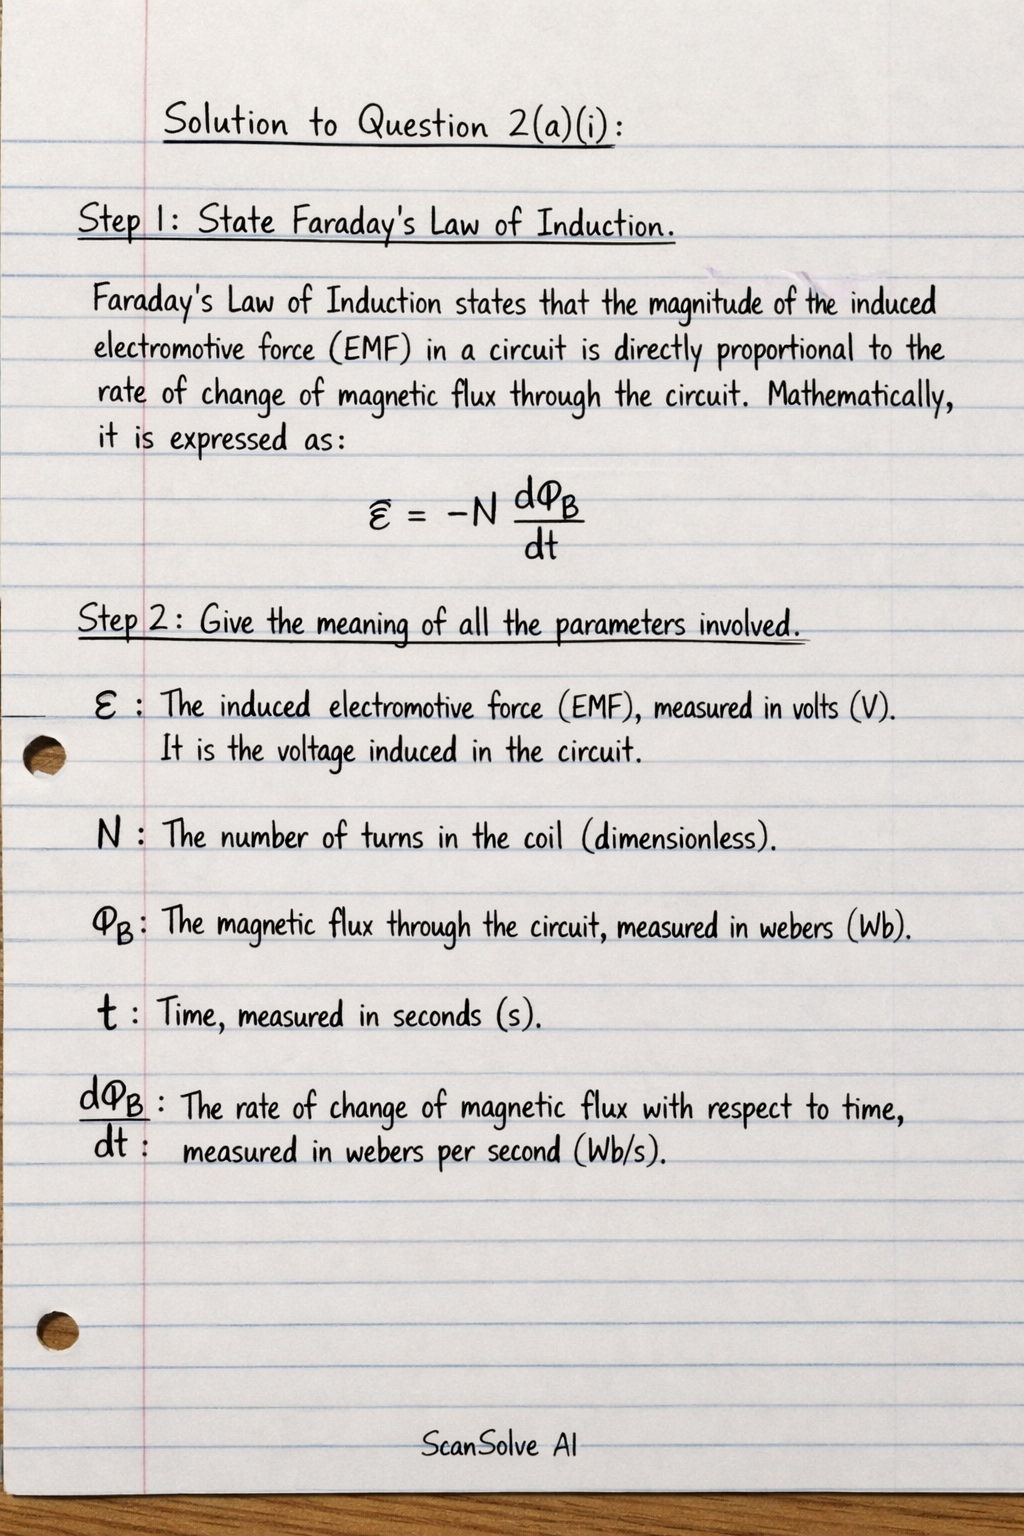 Solution to Question 2(a)(i):
Step 1: State Faraday's Law of Induction.
Faraday's Law of Induction states that the magnitude of the induced
electromotive force (EMF) in a circuit is directly proportional to the
rate of change of magnetic flux through the circuit. Mathematically,
it is expressed as:
ε = -N dΦB/dt
Step 2: Give the meaning of all the parameters involved.
ε : The induced electromotive force (EMF), measured in volts (V).
It is the voltage induced in the circuit.
N : The number of turns in the coil (dimensionless).
ΦB: The magnetic flux through the circuit, measured in webers (Wb).
t : Time, measured in seconds (s).
dΦB/dt : The rate of change of magnetic flux with respect to time,
measured in webers per second (Wb/s).
ScanSolve AI